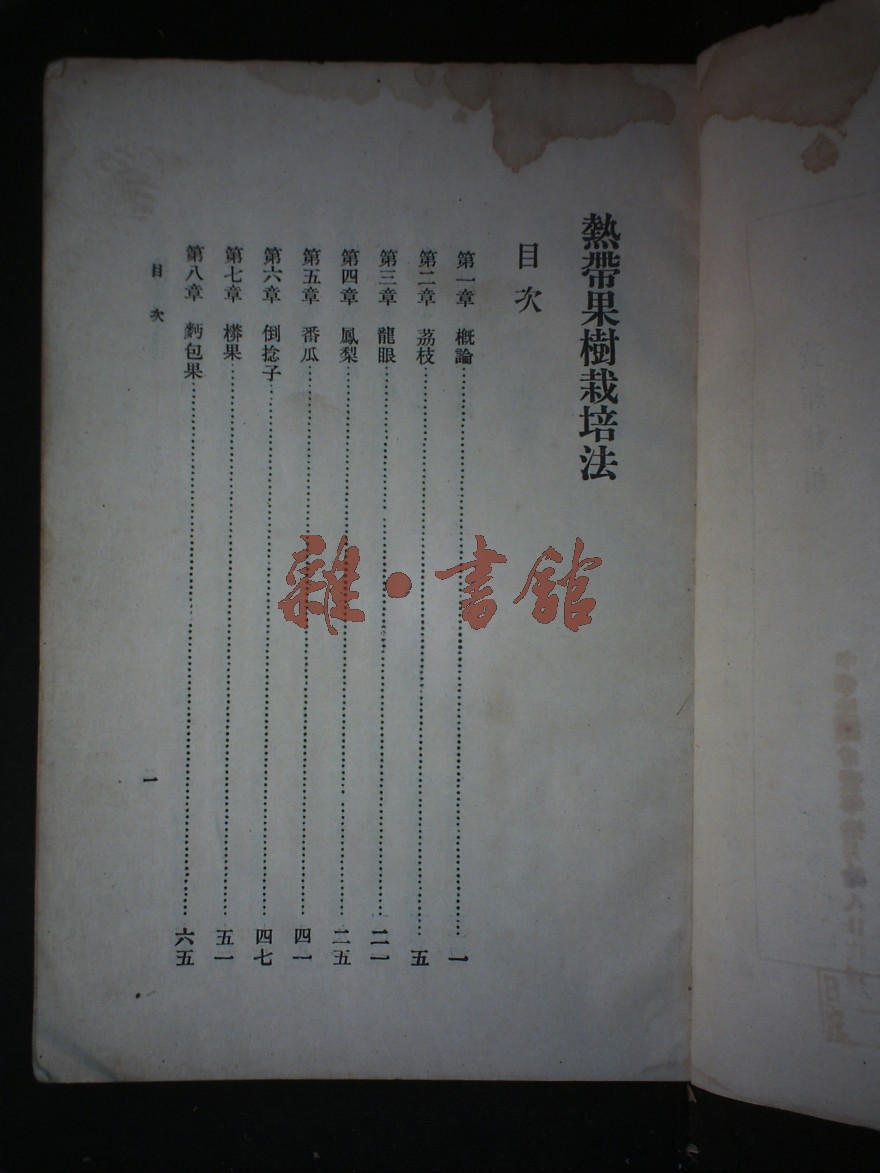 熱帶果樹栽培法
目次
第一章 概論……一
第二章 荔枝……五
第三章 龍眼……二一
第四章 鳳梨……二五
第五章 番瓜……四一
第六章 倒捻子……四七
第七章 檨果……五一
第八章 麪包果……六五
目次
一
雜·書館